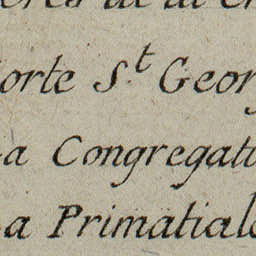 orte S.t Geor
a Congregati
a Primatial